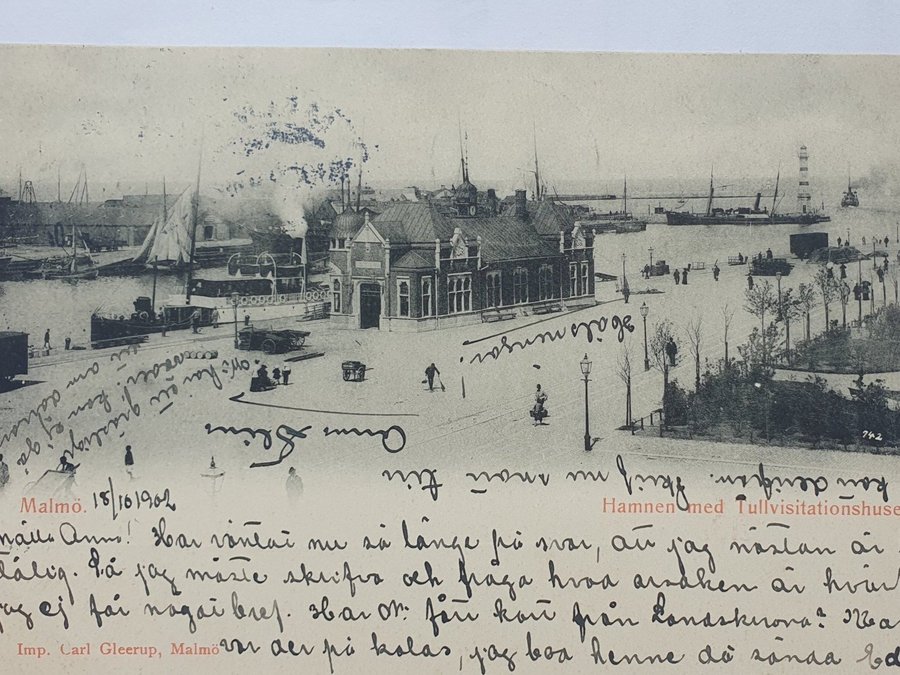 Malmö. 18/10 1902
Hamnen med Tullvisitationshuse
Anna! Har väntat nu så länge på svar, att jag nästan är
tålig. Så jag måste skrifva och fråga hvad orsaken är
jag ej får något bref. Har Ni fått kort från Landskrona?
Imp. Carl Gleerup, Malmö
var der på kalas, jag bad henne då sända
kort derifrån. Skrif nu snart till
Anna Stina
Hälsningar
742